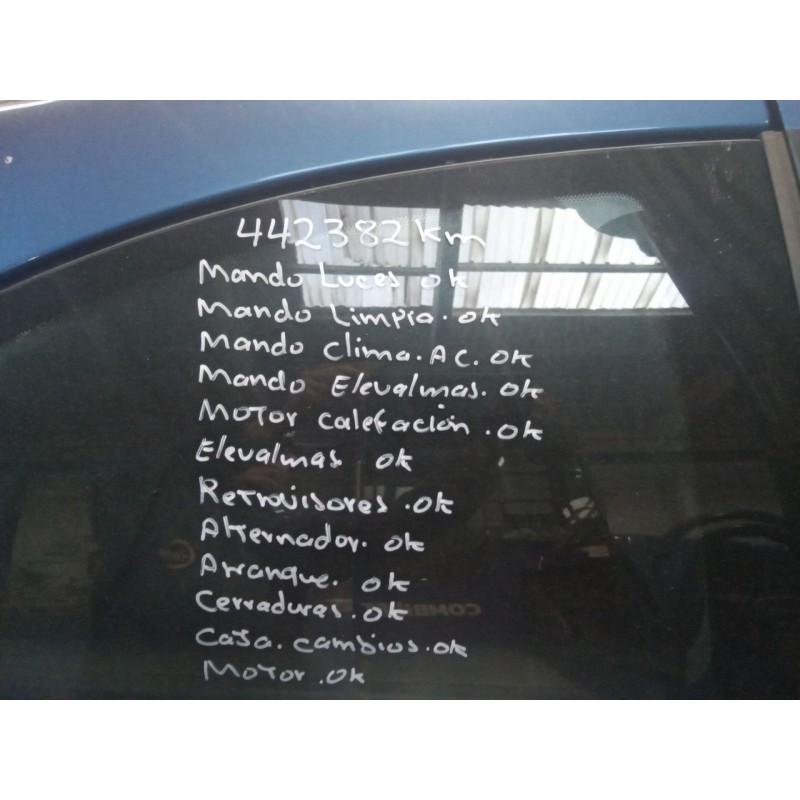 442382 km
Mando Luces ok
Mando Limpia. ok
Mando clima. AC. ok
Mando Elevalmas. ok
Motor calefacion. ok
Elevalmas ok
Retrovisores. ok
Alternador. ok
Arranque. ok
Cerraduras. ok
Caja. cambios. ok
Motor. ok